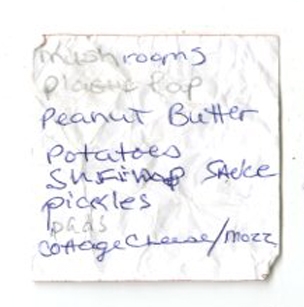 mushrooms
Plastic
Peanut Butter
Potatoes
Shrimp Sauce
pickles
pads
Cottage Cheese/mozz